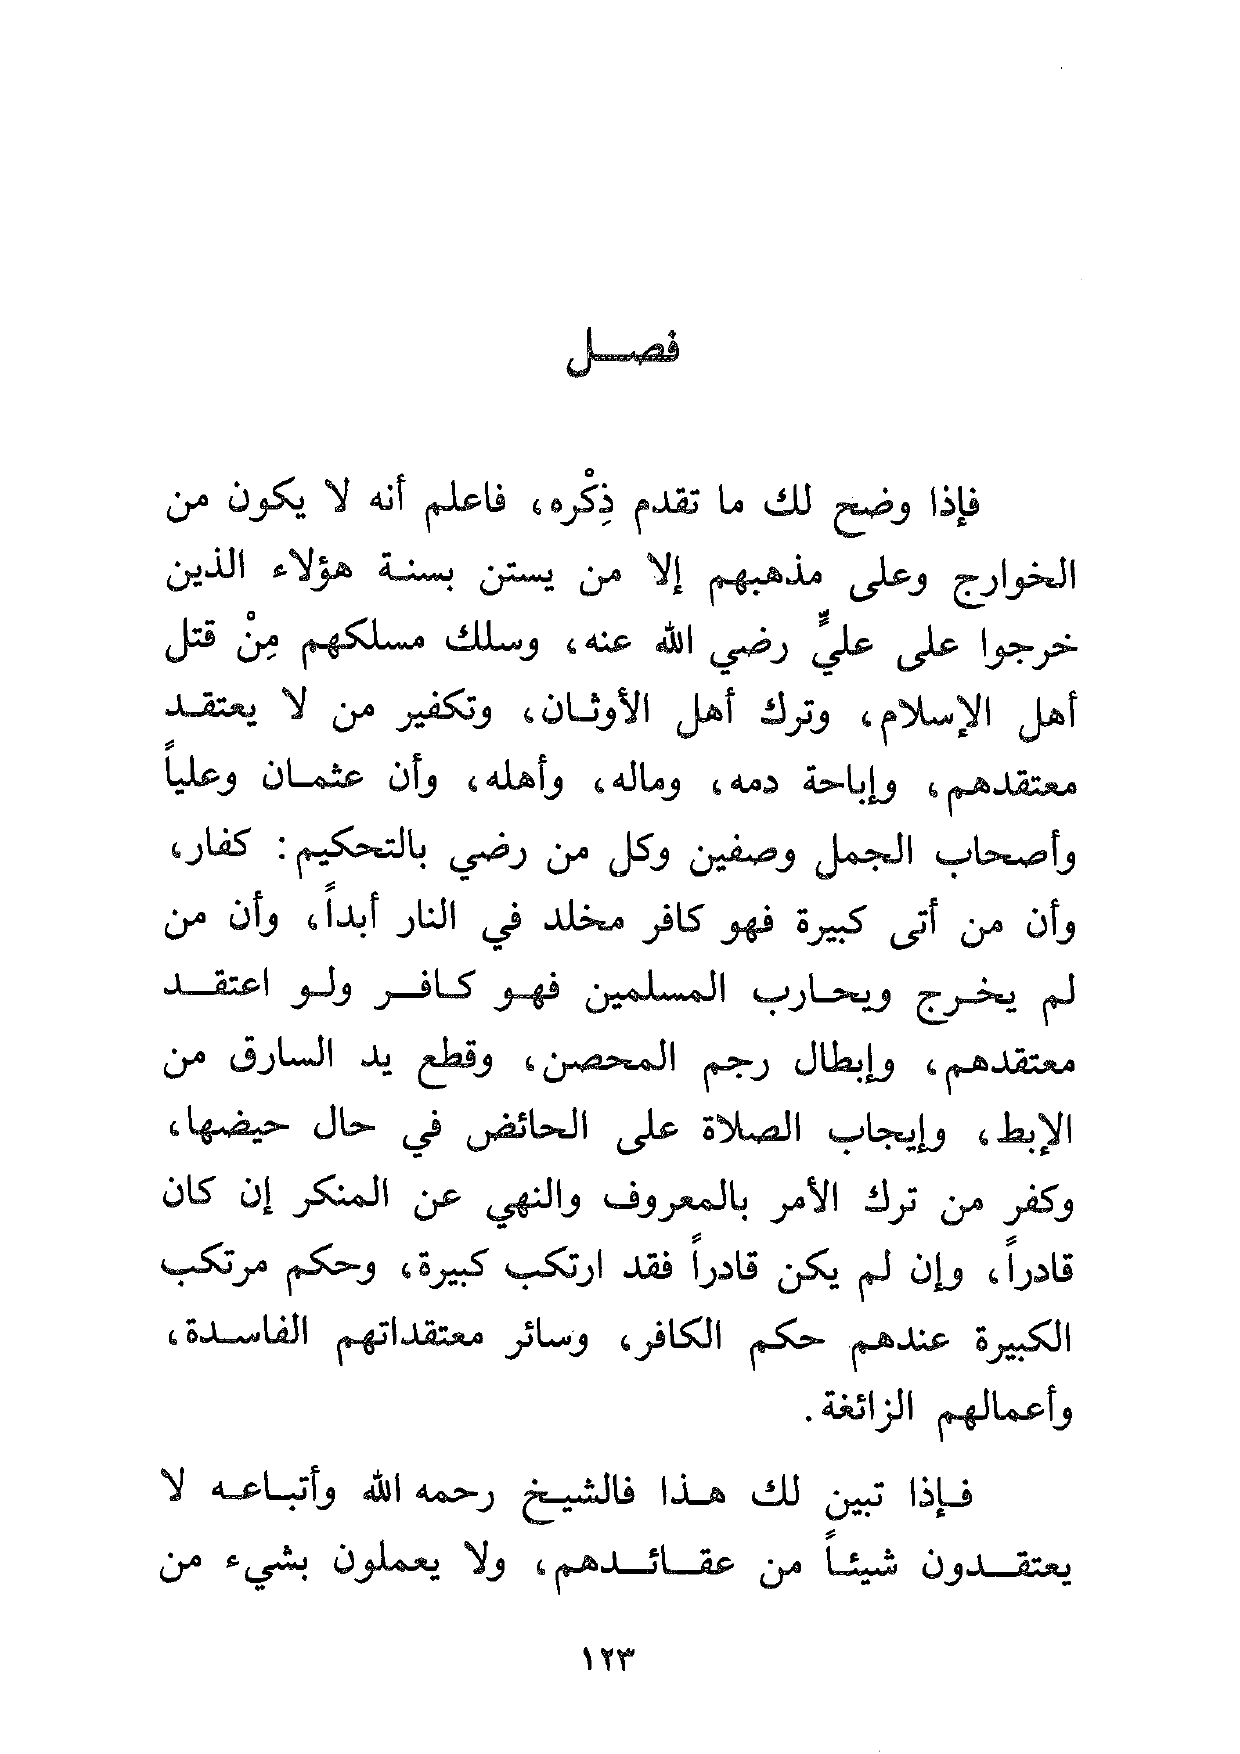 فصـــل
فإذا وضح لك ما تقدم ذِكْره، فاعلم أنه لا يكون من
الخوارج وعلى مذهبهم إلا من يستن بسنة هؤلاء الذين
خرجوا على عليٍّ رضي الله عنه، وسلك مسلكهم مِنْ قتل
أهل الإسلام، وترك أهل الأوثان، وتكفير من لا يعتقد
معتقدهم، وإباحة دمه، وماله، وأهله، وأن عثمان وعلياً
وأصحاب الجمل وصفين وكل من رضي بالتحكيم: كفار،
وأن من أتى كبيرة فهو كافر مخلد في النار أبداً، وأن من
لم يخرج ويحارب المسلمين فهو كافر ولو اعتقد
معتقدهم، وإبطال رجم المحصن، وقطع يد السارق من
الإبط، وإيجاب الصلاة على الحائض في حال حيضها،
وكفر من ترك الأمر بالمعروف والنهي عن المنكر إن كان
قادراً، وإن لم يكن قادراً فقد ارتكب كبيرة، وحكم مرتكب
الكبيرة عندهم حكم الكافر، وسائر معتقداتهم الفاسدة،
وأعمالهم الزائغة.
فإذا تبين لك هذا فالشيخ رحمه الله وأتباعه لا
يعتقدون شيئاً من عقائدهم، ولا يعملون بشيء من
١٢٣